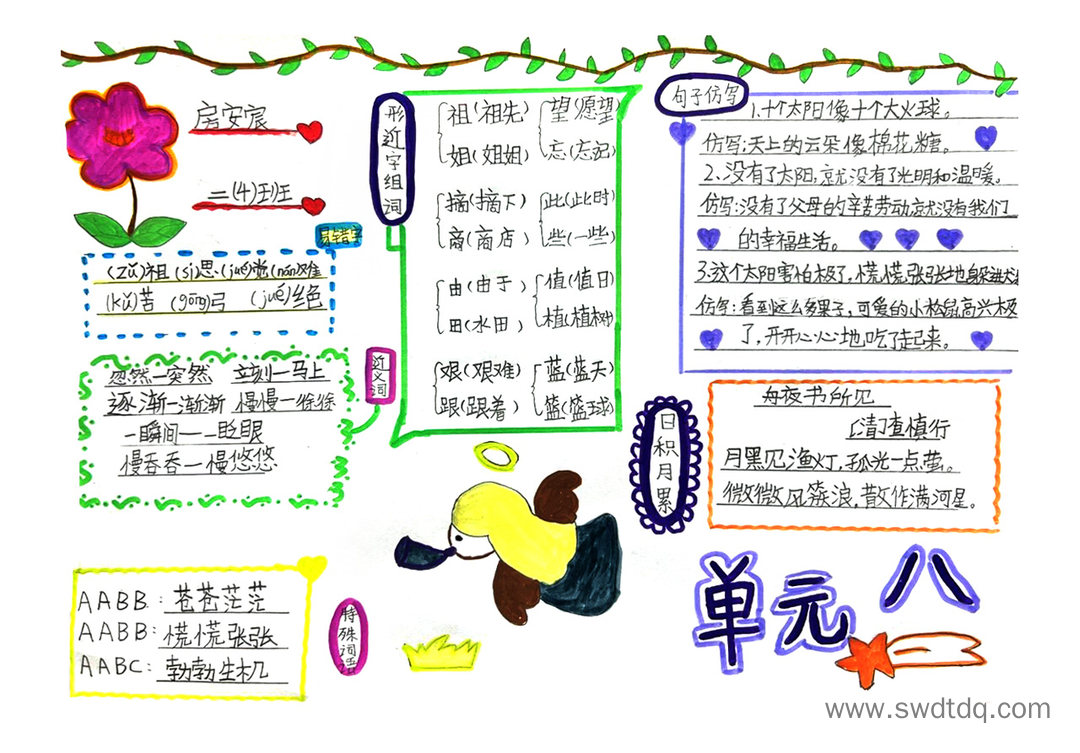 启安宸
二(4)班
易错字
(zǔ)祖 (sī)思 (jué)觉 (nán)难
(kǔ)苦 (gōng)弓 (jué)绝
近义词
忽然—突然 立刻—马上
逐渐—渐渐 慢慢—徐徐
一瞬间——眨眼
慢吞吞—慢悠悠
AABB:苍苍茫茫
AABB:慌慌张张
AABC:勃勃生机
特殊词语
形近字组词
祖(祖先) 望(愿望)
姐(姐姐) 忘(忘记)
摘(摘下) 此(此时)
商(商店) 些(一些)
由(由于) 值(值日)
田(水田) 植(植树)
艰(艰难) 蓝(蓝天)
跟(跟着) 篮(篮球)
句子仿写
1.十个太阳像十个大火球。
仿写:天上的云朵像棉花糖。
2、没有了太阳,就没有了光明和温暖。
仿写:没有了父母的辛苦劳动就没有我们
的幸福生活。
3.这个太阳害怕极了,慌慌张张地躲进大
仿写:看到这么多果子,可爱的小松鼠高兴极
了,开开心心地吃了起来。
日积月累
舟夜书所见
[清]查慎行
月黑见渔灯,孤光一点萤。
微微风簇浪,散作满河星。
单元八
www.swdtdq.com